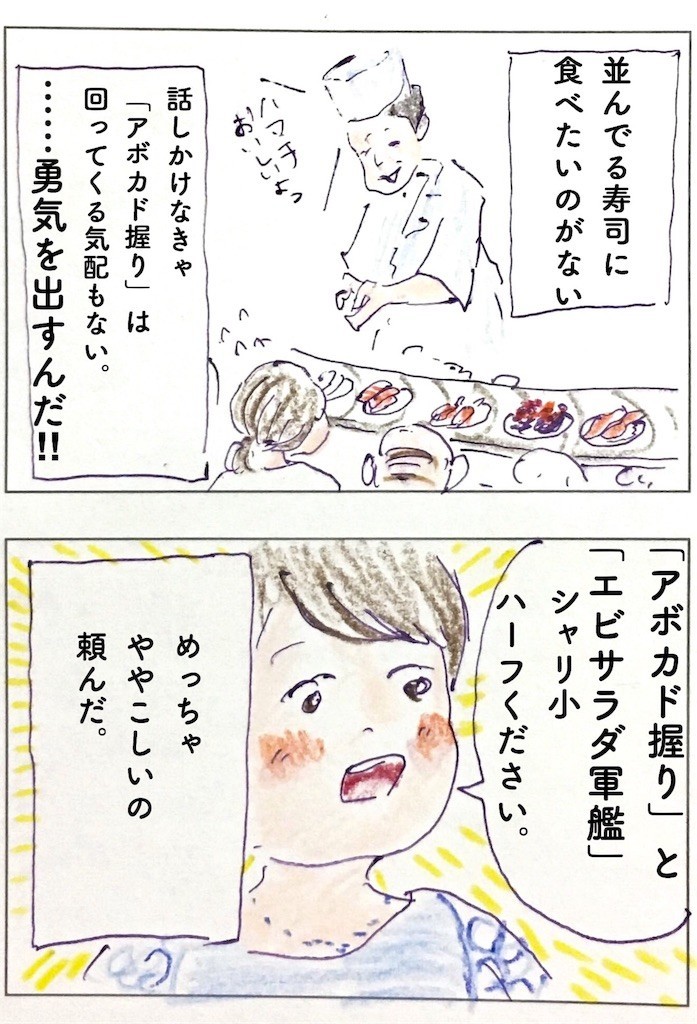 並んでる寿司に
食べたいのがない
ハマチ
おいしいよっ
話しかけなきゃ
「アボカド握り」は
回ってくる気配もない。
……勇気を出すんだ!!
「アボカド握り」と
「エビサラダ軍艦」
シャリ小
ハーフください。
めっちゃ
ややこしいの
頼んだ。